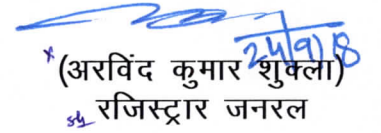 24/9/18
(अरविंद कुमार शुक्ला)
रजिस्ट्रार जनरल